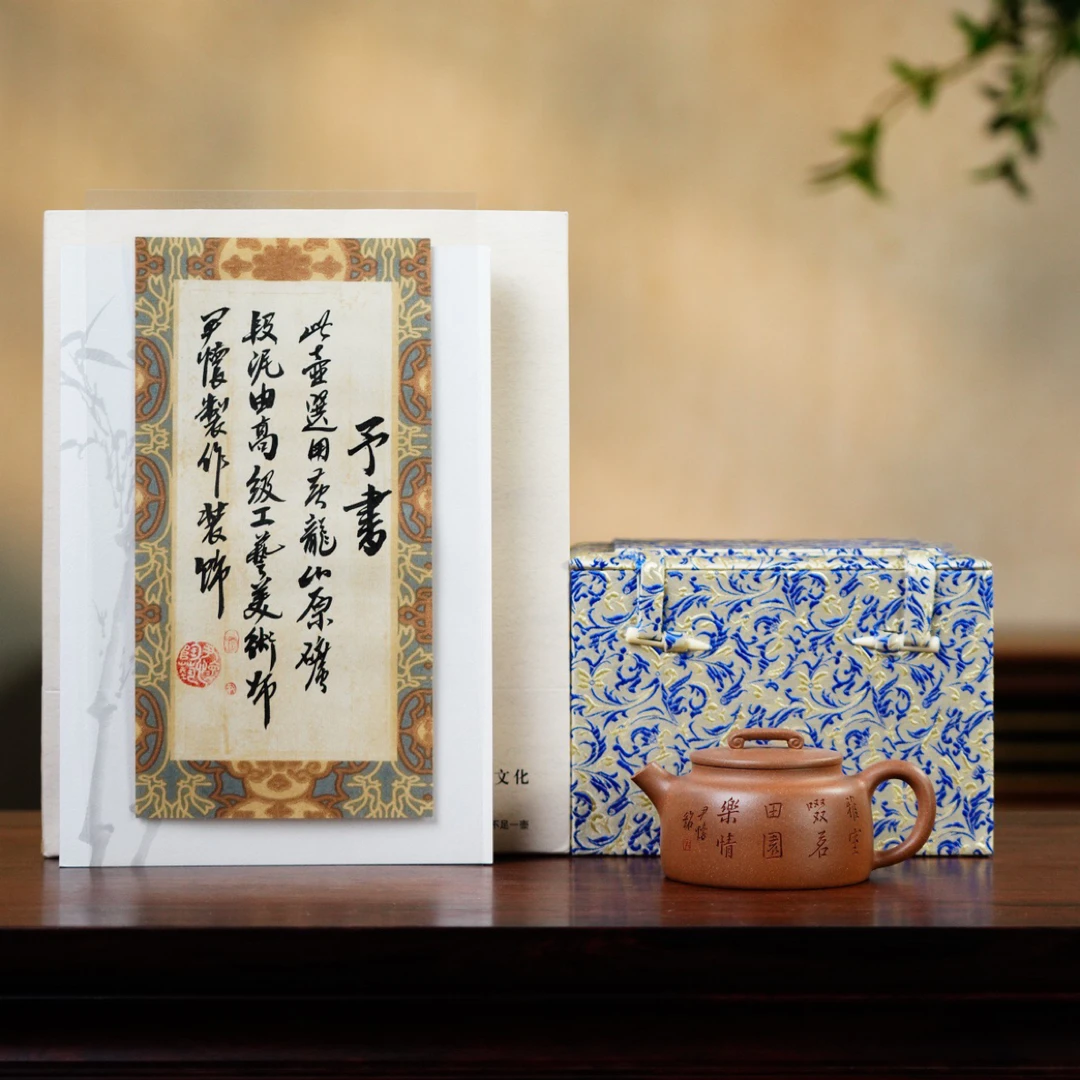 予書
此壺選用黃龍山原礦
段泥由高級工藝美術師
尹懷製作裝飾
文化
不足一壺
雅室
啜茗
田園
樂情
尹懷